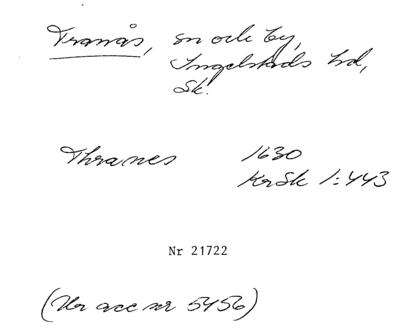 Tranås, sn och by,
Ingelstads hd,
Sk.
Thranes 1630
KrSk 1:443
Nr 21722
(Ur acc nr 5456)